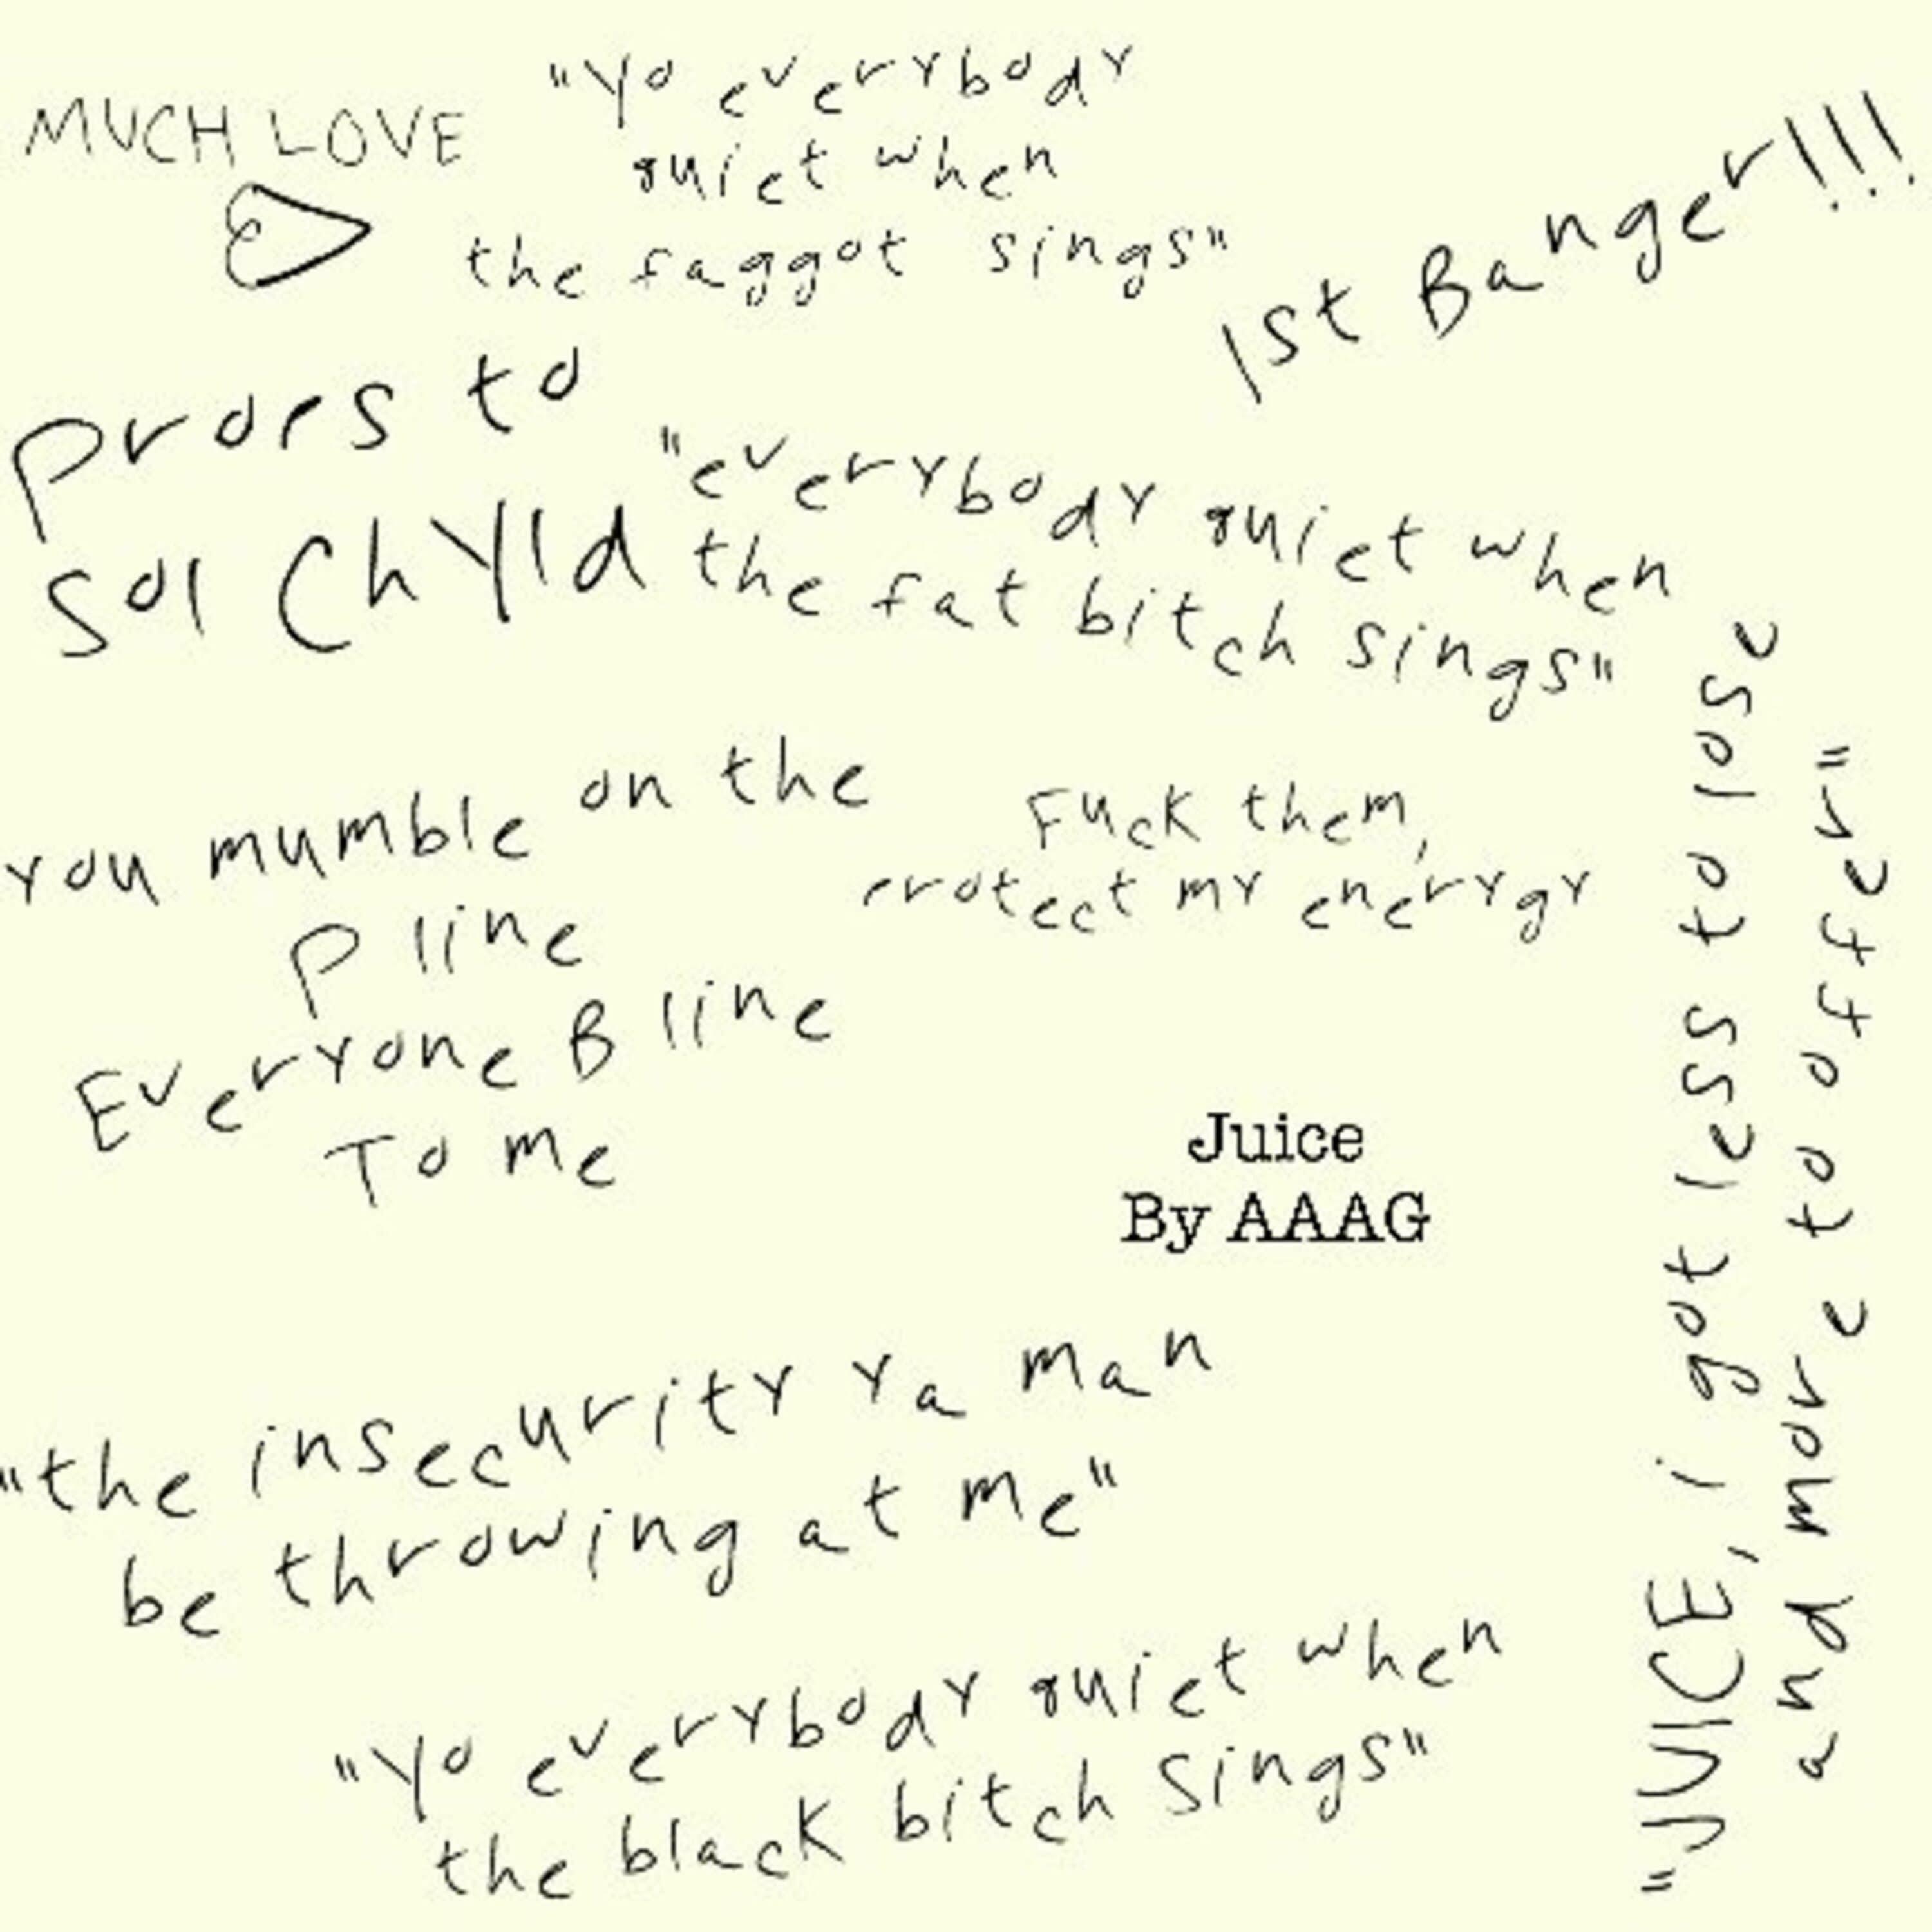 MUCH LOVE
"Yo everybody
quiet when
the faggot sings"
1st Banger!!!
Props to
Sol ChYld
"everybody quiet when
the fat bitch sings"
you mumble on the
P line
Everyone B line
To me
Fuck them,
protect my enerygy
Juice
By AAAG
"JUICE, i got less to lose
and more to offer"
"the insecurity ya man
be throwing at me"
"Yo everybody quiet when
the black bitch sings"